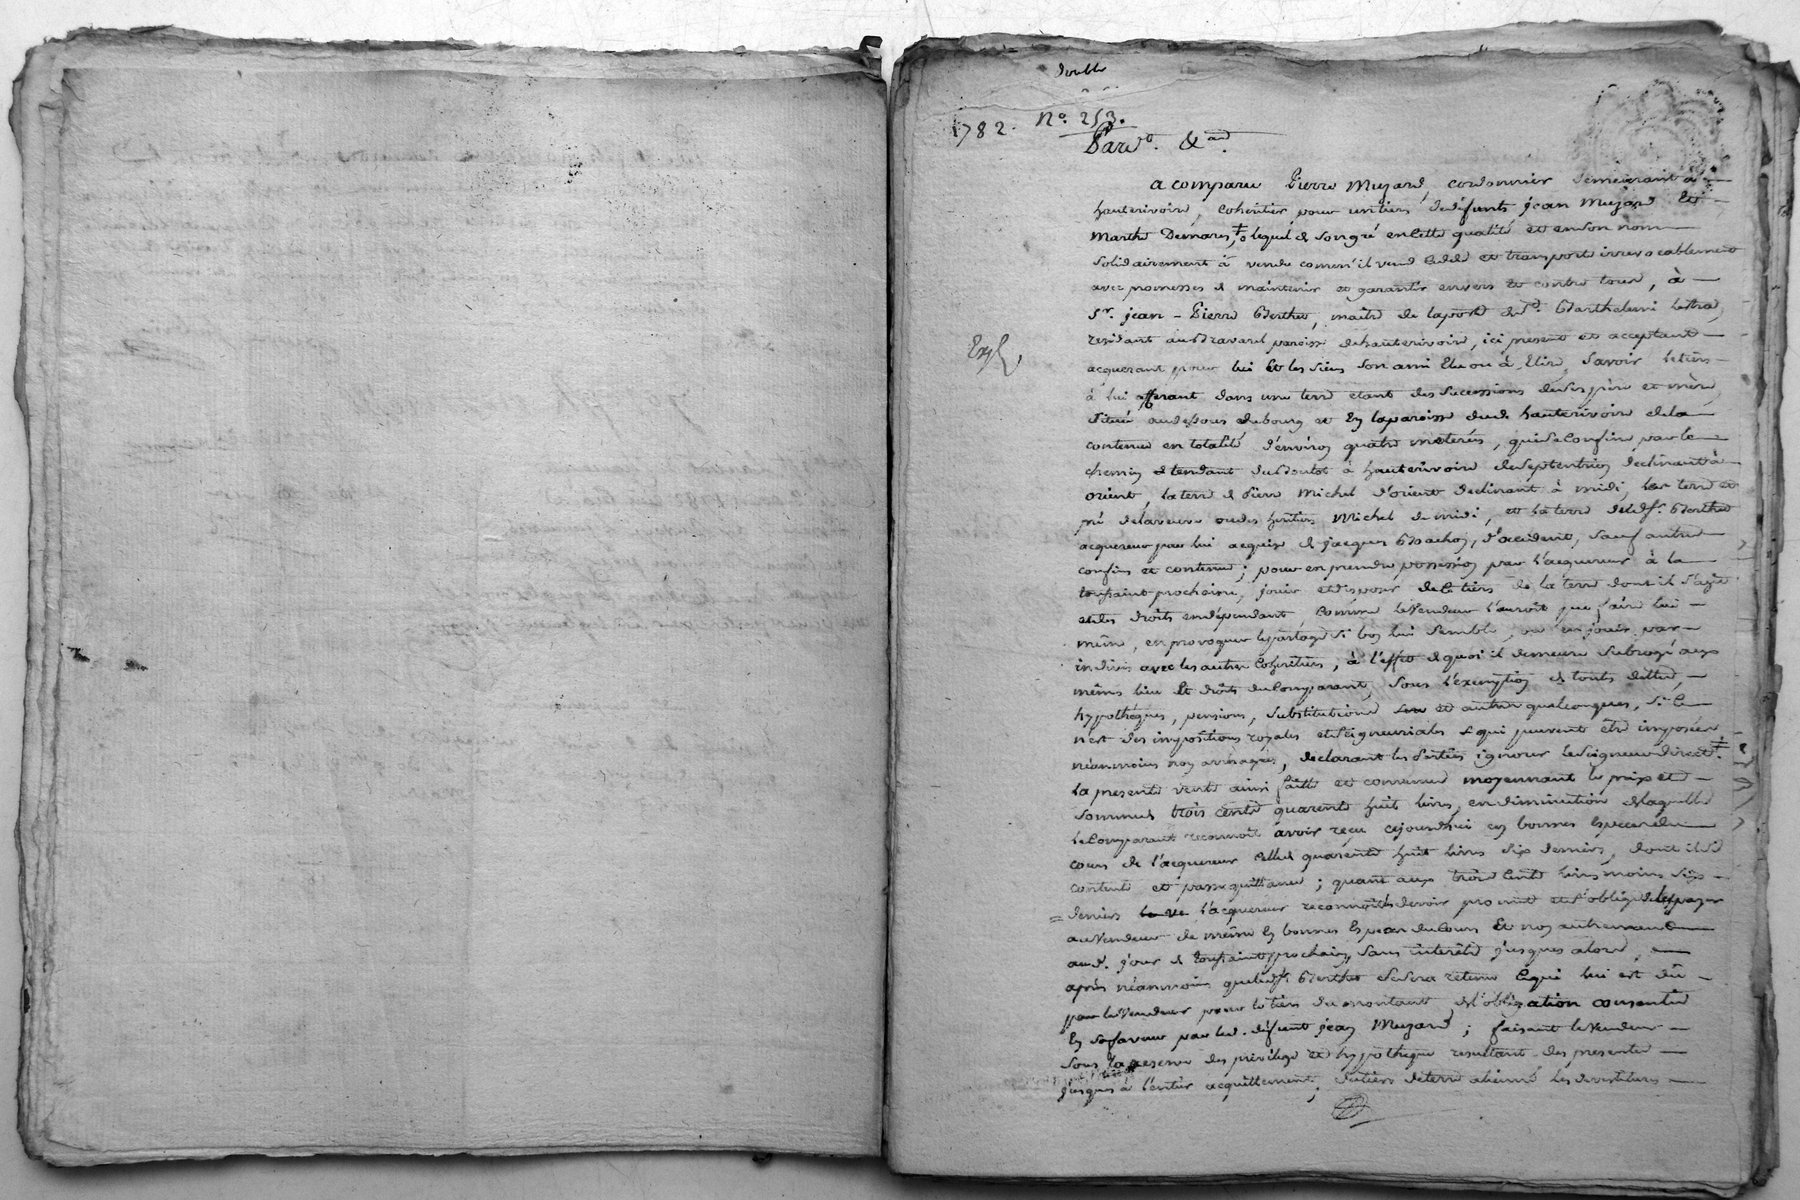 double
1782. N.° 253.
Pard.° &.a
a comparu Pierre Muzard, cordonnier demeurant à
hauterivoire, cohéritier pour un tiers de défunts jean Muzard et
Marthe lequel de son gré en cette qualité et en son nom
solidairement à vendu comm'il vend cedde et transporte irrevocablement
avec promesses de maintenir et garantir envers et contre tous, à
S.r jean-Pierre Berthet, maitre de la poste
residant paroisse de hauterivoire, ici present et acceptant
acquerant pour lui et les siens son ami elu ou à elire, savoir le tiers
à lui afferant dans une terre etant des successions de ses père et mère,
située au dessous du bourg et en la paroisse dud. hauterivoire de la
contenue en totalité d'environ quatre meterés, qui se confine par le
chemin tendant à hauterivoire de septentrion declinant à
orient, la terre de Pierre Michel d'orient declinant à midi, les terre et
pré ou des heritiers Michel de midi, et la terre dud. S.r Berthet
acquereur par lui acquise de jacques d'occident, sauf autres
confins et contenue; pour en prendre possession par l'acquereur à la
toussaint prochaine, jouir et disposer de ce tiers de la terre dont il s'agit
et des droits en dépendant comme le vendeur l'auroit pu faire lui
même, en provoquer le partage si bon lui semble, ou en jouir par
indivis avec les autres cohéritiers, à l'effet de quoi il demeure subrogé aux
mêmes lieu et droits du comparant, sous l'exemption de toutes dettes,
hypothéques, pensions, substitutions et autres quelconques, si ce
n'est des impositions royales et seigneuriales qui peuvent etre imposées
néanmoins non arréragées, declarant les parties ignorer le seigneur direct.
La presente vente ainsi faitte et convenue moyennant le prix et
somme trois cents quarente huit livres, en diminution de laquelle
le comparant reconnoit avoir reçu cejourd'hui en bonnes especes du
cours de l'acquereur celle de quarente huit livres six deniers, dont il se
contente et passe quittance; quant aux trois cents livres moins six
deniers l'acquereur reconnoit les devoir promet et s'oblige de les payer
au vendeur de même en bonnes especes du cours et non autrement
aud. jour de toussaint prochain, sans interêts jusques alors,
après néanmoins que led. S.r Berthet se sera retenu ce qui lui est dû
par le vendeur pour le tiers du montant de l'obligation consentie
en sa faveur par led. défunt jean Muzard; faisant le vendeur
sous la reserve des privilege et hypotheque resultant des presentes
jusques à l'entier acquittement, du tiers de terre aliené les devestitures